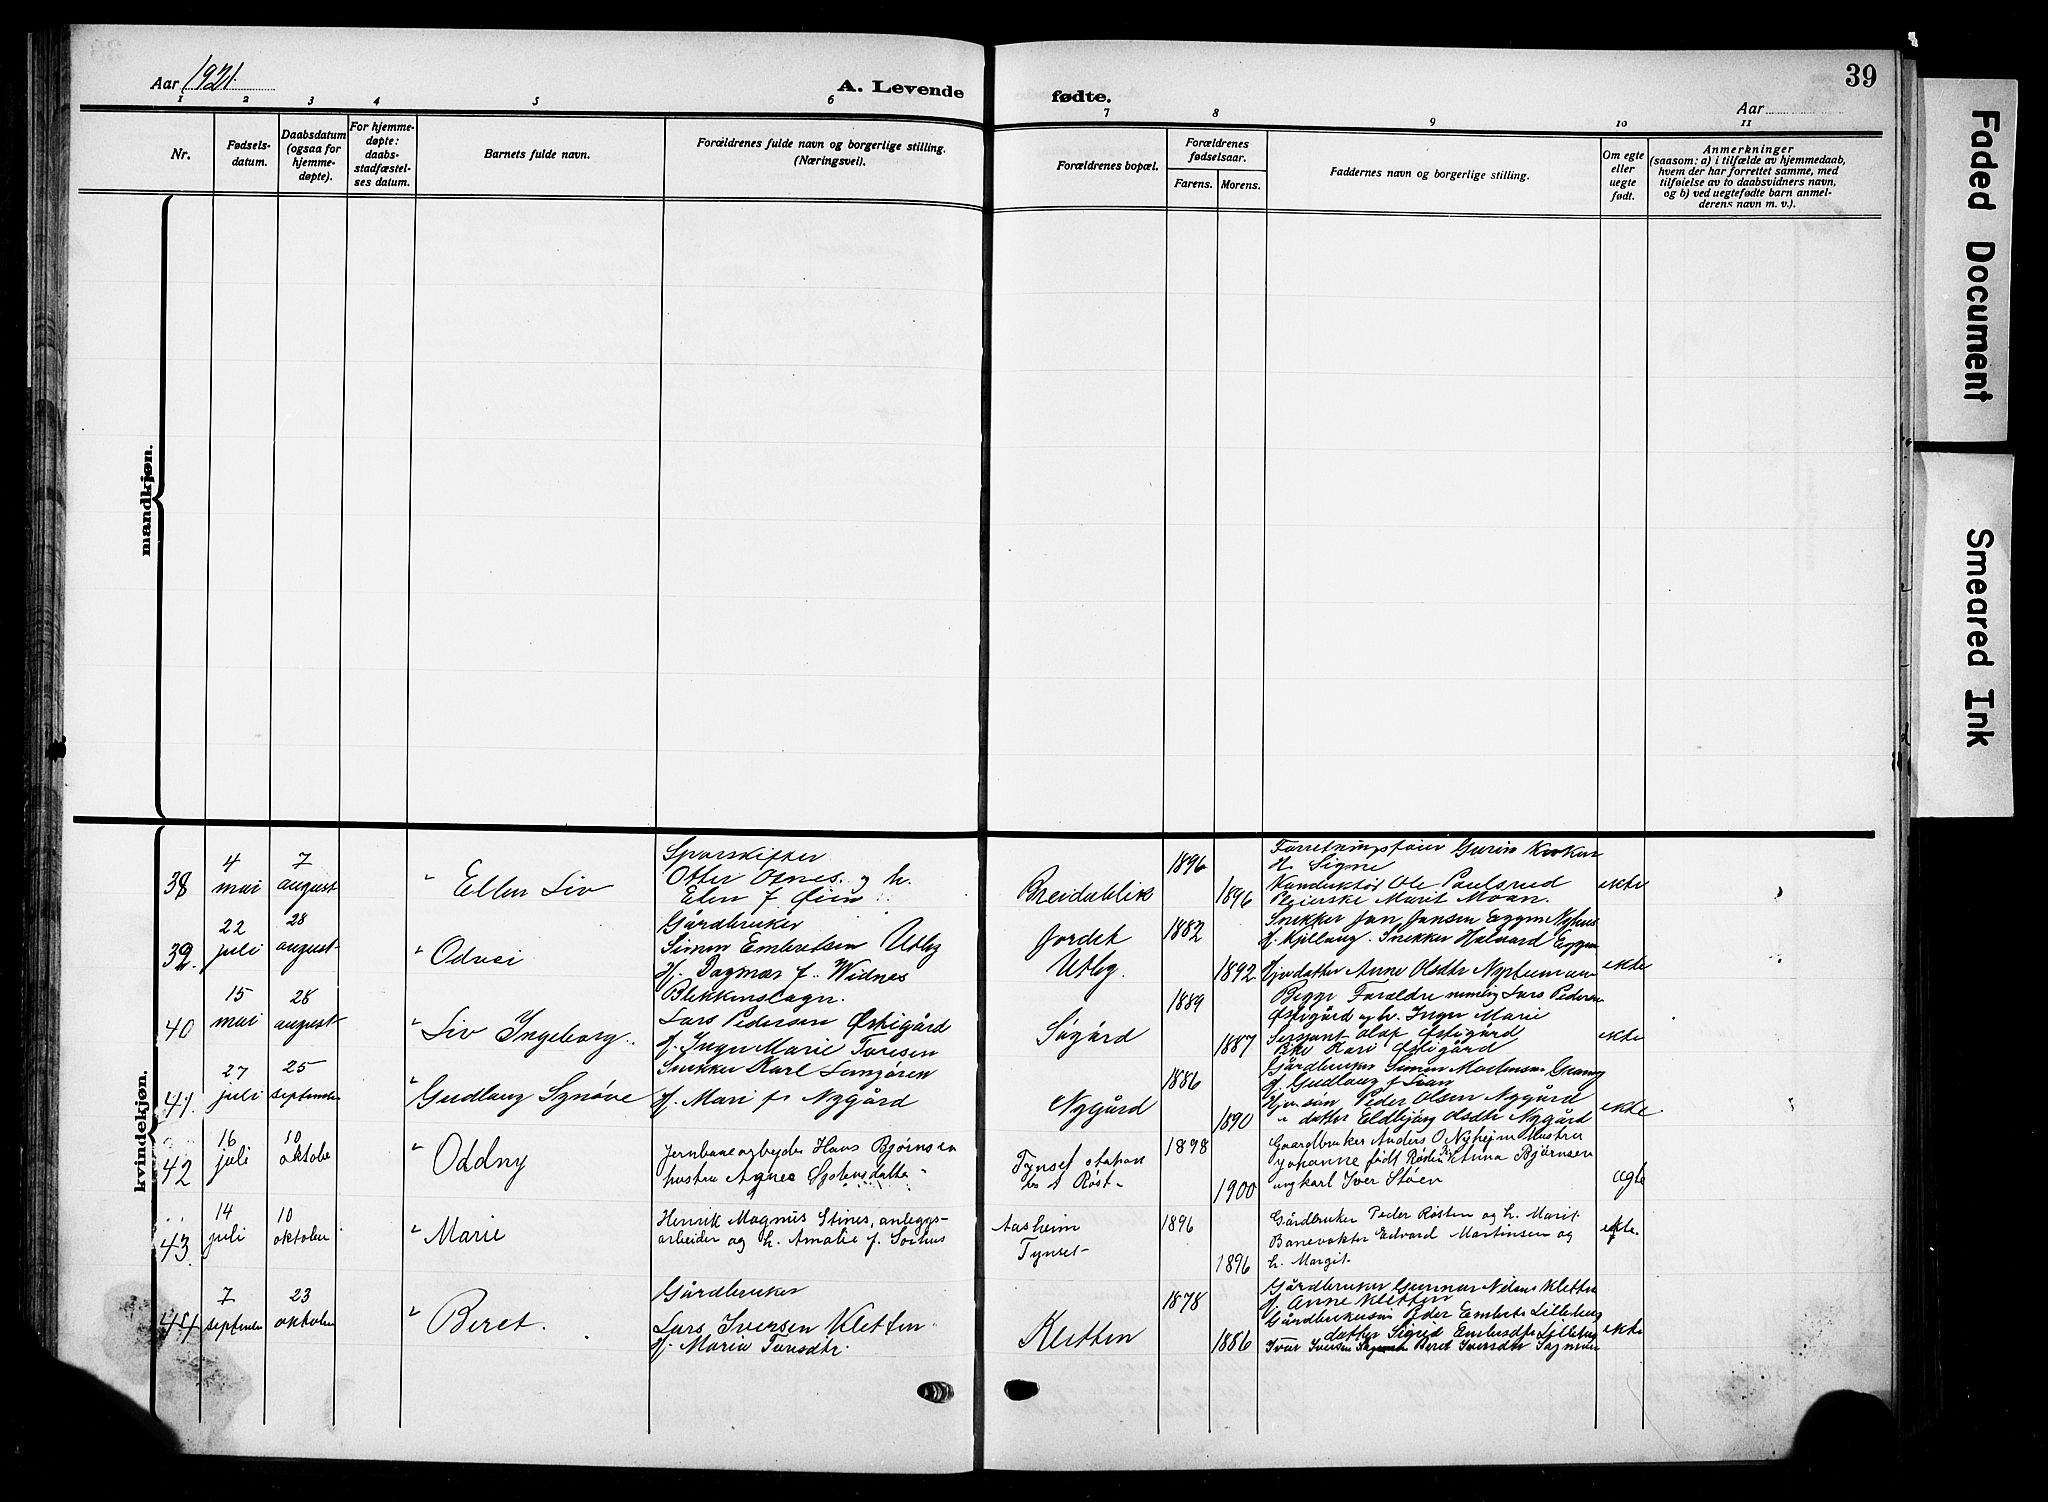 Aar 1921.
A. Levende fødte.
Aar
39
1 2 3 4 5 6 7 8 9 10 11
Nr.
Fødsels-
datum.
Daabsdatum
(ogsaa for
hjemme-
døpte).
For hjemme-
døpte:
daabs-
stadfæstel-
ses datum.
Barnets fulde navn.
Forældrenes fulde navn og borgerlige stilling.
(Næringsvei).
Forældrenes bopæl.
Forældrenes
fødselsaar.
Farens. Morens.
Faddernes navn og borgerlige stilling.
Om egte
eller
uegte
født.
Anmerkninger
(saasom: a) i tilfælde av hjemmedaab,
hvem der har forrettet samme, med
tilføielse av to daabsvidners navn,
og b) ved uegtefødte barn anmel-
derens navn m. v.).
mandkjøn.
kvindekjøn.
38
4
mai
7
august
Ellen Liv
Sporskifter
Otter Osnes og h.
Elen f. Øien
Breidablik
1896
1896
H. Signe
Konduktør Ole Paulsrud
Pleierske Marit Moan.
ekte
39.
22
juli
28
august
Odvei
Gårdbruker
Simen Embretsen Utby
H. Dagmar f. Widnes
Jordet
Utby.
1882
1892
Snekker Jan Jansen Eggen Nyhus
H. Kjellaug. Snekker Halvard Eggen
Anne Olsdtr
ekte
40
15
mai
28
august
Liv Ingeborg
Blikkenslagr.
Lars Pedersen Østigård
H. Inger Marie Toresen
Søgård
1889
1887
Begge Foreldre nemlig Lars Pedersen
Østigård og h. Inger Marie
Sersjant Olaf Østigård
Pike Kari Østigård
ekte
41.
27
juli
25
september
Gudlaug Synøve
Snekker Karl
H. Mari f. Nygård
Nygård
1886
1890
Gårdbruker Simen Mortensen
H. Gudlaug f.
Peder Olsen Nygård
" datter Eldbjørg Olsdtr Nygård
ekte
42
16
juli
10
oktobe
Oddny
Jernbanearbeyder Hans Bjørnsen
hustru Agnes
Tynset station
Røst
1898
1900
Gaardbruker Anders O Nyhejm Hustru
Johanne født Røsten Anna Bjørnsen
ungkarl Iver Støen
egte
43.
14
juli
10
oktober
Marie
Henrik Magnus Stines, anleggs-
arbeider og h. Amalie f. Sørhus
Aasheim
Tynset
1896
1896
Gårdbruker Peder Røsten og h. Marit.
Banevokter Edvard Martinsen og
h. Margit.
ekte.
44
7
september
23
oktober
Beret.
Gårdbruker
Lars Iversen Kletten
H. Maria Tørisdtr.
Kletten
1878
1886
Gårdbruker Gunnar Nilsen Kletten
H. Anne Kletten
Gårdbrukersøn Peder Embrets Lillebery
datter Sigrid Embretsdtr
Ivar Iversen Beret Iversdtr
ekte
Faded Document
Smeared Ink